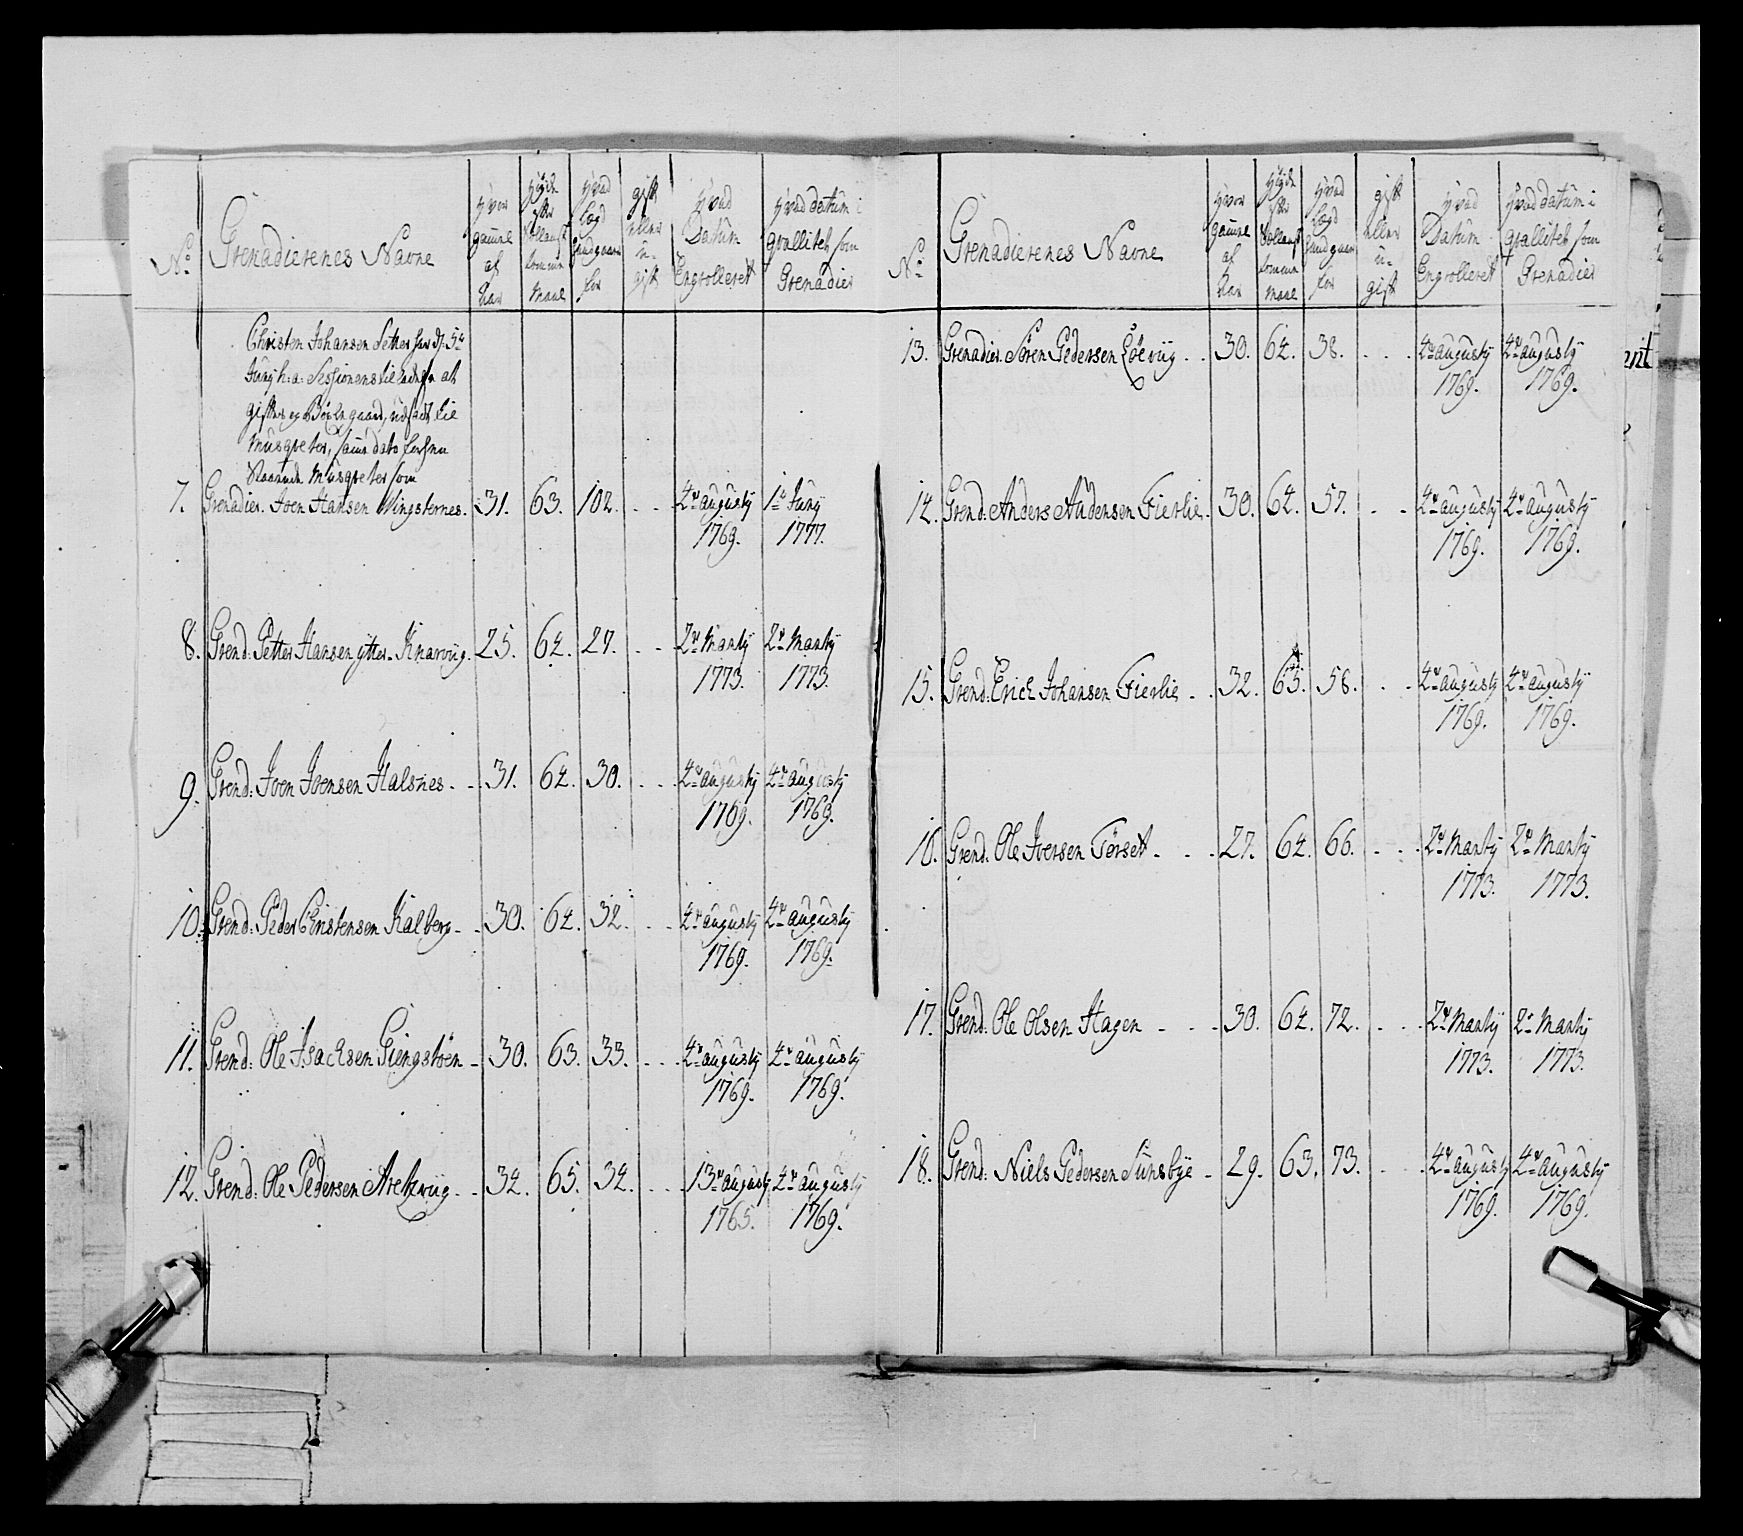 No
Grenadierenes Navne
hvor gamle af aar
høyde efter Sollansk tomme maal
hvad Lægd hand gaar for
gift eller u-gift
hvad Datum Engrolleret
hvad datum i qvallitet som Grenadier
Christen Johansen Setter har d:
Juny h: a: Sessionens tilladelse at
giftes
Musqveter, samme dato
Musqveter som
7. Grenadier. Joen Hansen Wingsternes. 31. 63. 102. - - 4de augusty 1769. 1te Juny 1777.
8. Grend: Petter Hansen ytter-Knarvug. 25. 64. 27. - - 2de Marty 1773. 2de Marty 1773.
9. Grend: Iver Iversen Halsnes - - 31. 64. 30. - - 4de augusty 1769. 4de augusty 1769.
10. Grend: Peder Christensen Kalberg - - 30. 64. 32. - - 4de augusty 1769. 4de augusty 1769.
11. Grend: Ole Isachsen Giengstøen - 30. 63. 33. - - - 4de augusty 1769. 4de augusty 1769.
12. Grend: Ole Pedersen Arekvug - - 34. 65. 34. - - - 13de augusty 1765. 4de augusty 1769.
No
Grenadierenes Navne
hvor gamle af aar
høyde efter Sollansk tomme maal
hvad Lægd hand gaar for
gift eller u-gift
hvad Datum Engrolleret
hvad datum i qvallitet som Grenadier
13. Grenadier. Søren Pedersen Løevug - - 30. 64. 38. - - - 4de augusty 1769. 4de augusty 1769.
14. Grend: Anders Andersen Fierlie - 30. 64. 57. - - 4de augusty 1769. 4de augusty 1769.
15. Grend: Erich Johansen Fierlie - - 32. 65. 58. - - 4de augusty 1769. 4de augusty 1769.
16. Grend: Ole Iversen Førset - - - 27. 64. 66. - - - 2de Marty 1773. 2de Marty 1773.
17. Grend: Ole Olsen Hagen - - - 30. 64. 72. - - - 2de Marty 1773. 2de Marty 1773.
18. Grend: Niels Pedersen Sunsbye - 29. 63. 73. - - - 4de augusty 1769. 4de augusty 1769.